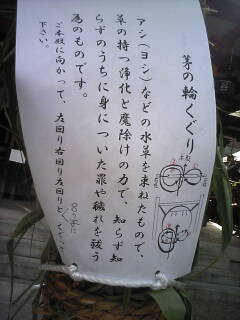 茅の輪くぐり
アシ(ヨシ)などの水草を束ねたもので、
草の持つ浄化と魔除けの力で、知らず知
らずのうちに身についた罪や穢れを祓う
為のものです。
ご本殿に向かって、左回り右回り左回りと、
下さい。